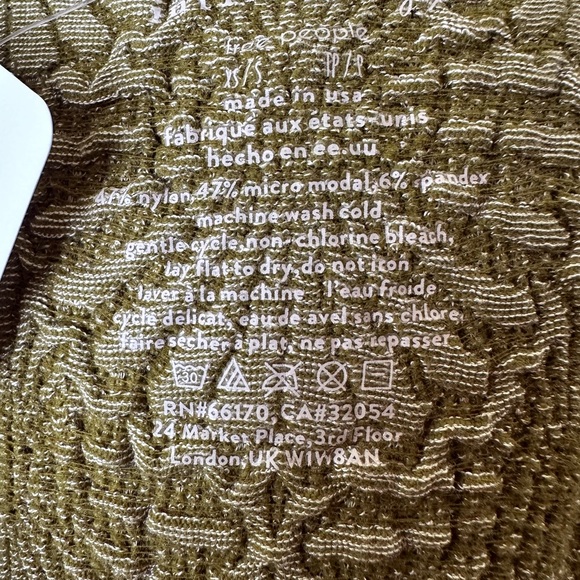 free people
XS/S TP/P
made in usa
fabriqué aux états-unis
hecho en ee.uu
47% nylon, 47% micro modal, 6% spandex
machine wash cold.
gentle cycle, non-chlorine bleach,
lay flat to dry, do not iron
laver à la machine l'eau froide
cycle délicat, eau de avel sans chlore,
faire sécher à plat, ne pas repasser
30
RN#66170, CA#32054
24 Market Place, 3rd Floor
London, UK W1W8AN